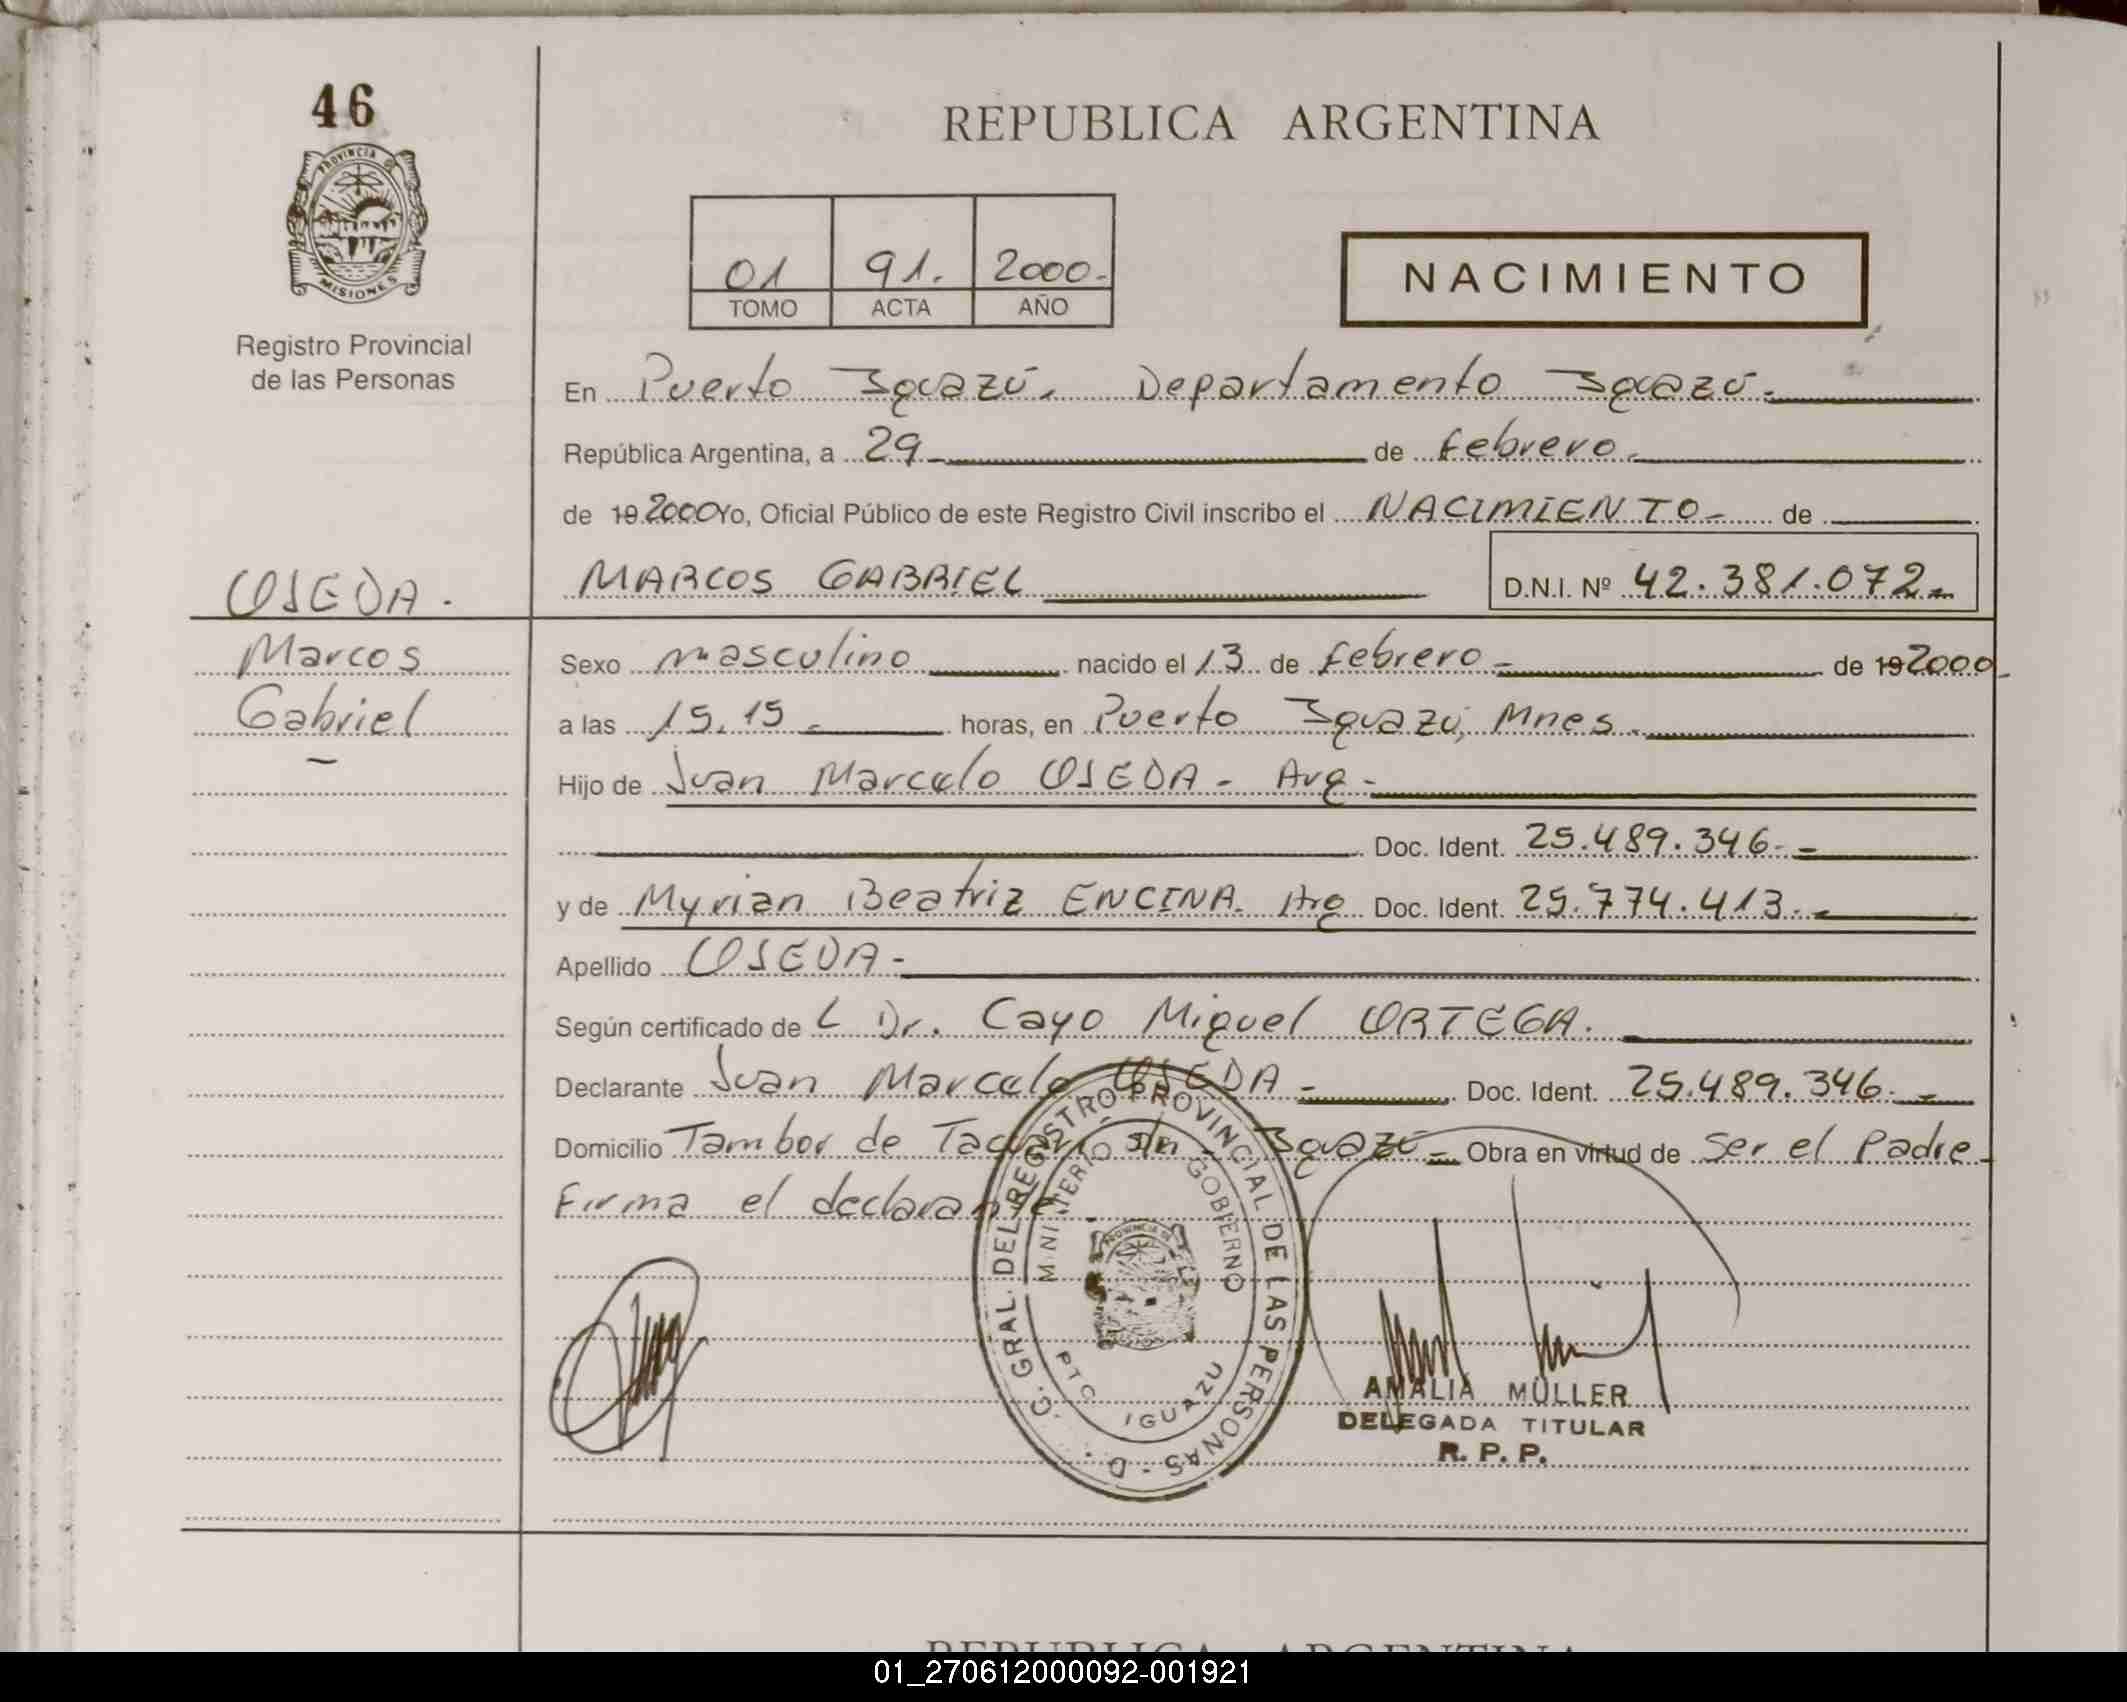 46
REPUBLICA ARGENTINA
PROVINCIA DE
MISIONES
Registro Provincial
de las Personas
01 91. 2000.
TOMO ACTA AÑO
NACIMIENTO
En Puerto Iguazú. Departamento Iguazú.
República Argentina, a 29 de febrero.
de 19 2000 Yo, Oficial Público de este Registro Civil inscribo el NACIMIENTO de
MARCOS GABRIEL D.N.I. Nº 42.381.072
OSEDA.
Marcos
Gabriel
Sexo masculino nacido el 13 de febrero de 19 2000
a las 15.15 horas, en Puerto Iguazú, Mnes.
Hijo de Juan Marcelo OSEDA - Arg -
Doc. Ident. 25.489.346.
y de Myrian Beatriz ENCINA. Arg Doc. Ident. 25.774.413.
Apellido OSEDA -
Según certificado de L Dr. Cayo Miguel ORTEGA.
Declarante Juan Marcelo OSEDA - Doc. Ident. 25.489.346.
Domicilio Tambor de Tacuarí s/n - Iguazú - Obra en virtud de Ser el Padre
Firma el declarante.
G. GRAL. DEL REGISTRO PROVINCIAL DE LAS PERSONAS - D.
MINISTERIO DE GOBIERNO
PTO. IGUAZU
AMALIA MÜLLER
DELEGADA TITULAR
R. P. P.
REPUBLICA ARGENTINA
01_270612000092-001921